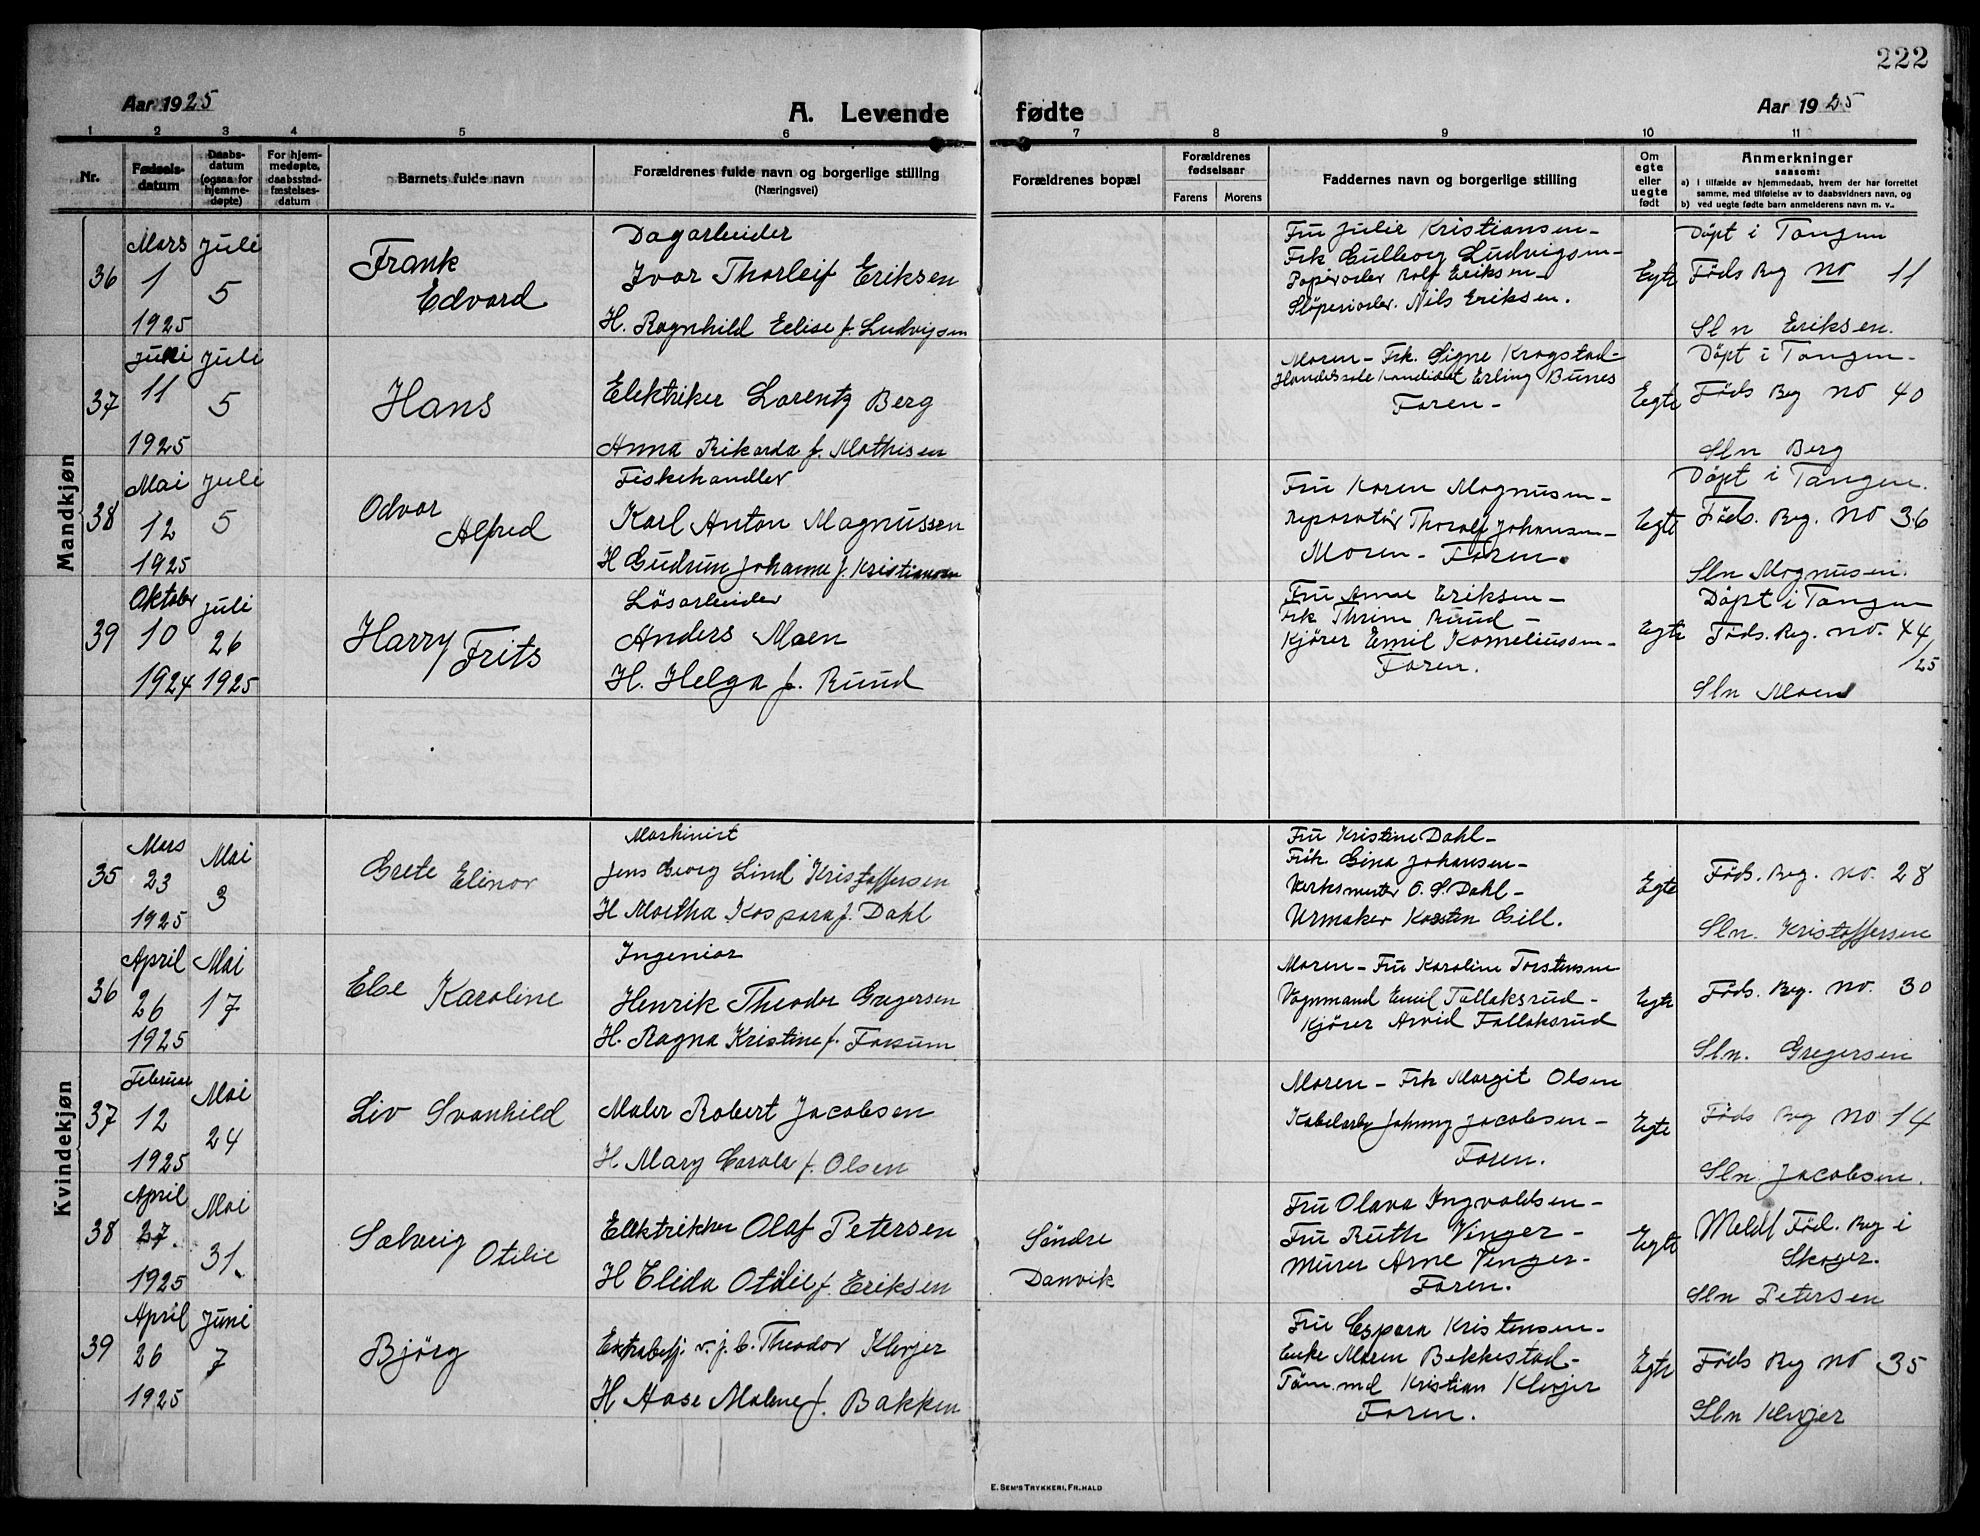 222
Aar 1925
A. Levende fødte
Aar 1925
1 2 3 4 5 6 7 8 9 10 11
Nr.
Fødsels-
datum
Daabs-
datum
(ogsaa for
hjemme-
døpte)
For hjem-
medøpte,
daabsstad-
fæstelses-
datum
Barnets fulde navn
Forældrenes fulde navn og borgerlige stilling
(Næringsvei)
Forældrenes bopæl
Forældrenes
fødselsaar
Farens Morens
Faddernes navn og borgerlige stilling
Om
egte
eller
uegte
født
Anmerkninger
saasom:
a) i tilfælde av hjemmedaab, hvem der har forrettet
samme, med tilføielse av to daabsvidners navn, og
b) ved uegte fødte barn anmelderens navn m. v..
Mandkjøn
36
Mars
1
1925
Juli
5
Frank
Edvard
Dagarbeider
Ivar Thorleif Eriksen
H. Ragnhild Eelise f. Ludvigsen
Fru Julie Kristiansen –
Frk Gulborg Ludvigsen –
Papirarbder Rolf Eriksen –
Nils Eriksen.
Egte
Döpt i Tangen
Föds Reg no 11
Sln Eriksen.
37
Juni
11
1925
Juli
5
Hans
Elektriker Lorentz Berg
Anna Rikarda f. Mathisen
Moren – Frk. Signe Krogstad –
Kandidat Erling Bunes
Faren –
Egte
Döpt i Tangen –
Föds Reg no 40
Sln Berg
38
Mai
12
1925
Juli
5
Odvar
Alfred
Fiskehandler
Karl Anton Magnussen
H Gudrun Johanne f. Kristiansen
Fru Karen Magnusen –
Reparatör Thoralf Johansen –
Moren – Faren.
Egte
Döpt i Tangen.
Föds. Reg. no 36
Sln Magnusen.
39
Oktober
10
1924
Juli
26
1925
Harry Frits
Løsarbeider
Anders Moen
H. Helga f. Ruud
Fru Anna Eriksen –
Frk Thrine Ruud –
Kjører Emil Korneliussen –
Faren.
Egte
Döpt i Tangen
Föds. Reg. no. 44
/25
Sln Moen
Kvindekjøn
35
Mars
23
1925
Mai
3
Grete Elinor
Maskinist
Jens Georg Lind Kristoffersen
H Martha Kaspara f. Dahl
Fru Kristine Dahl –
Frk Gina Johansen –
Verksmester O. S. Dahl –
Urmaker Karsten Gill.
Egte
Föds. Reg. no. 28
Sln. Kristoffersen
36
April
26
1925
Mai
17
Else Karoline
Ingeniør
Henrik Theodor Gregersen
H. Ragna Kristine f. Fossum
Moren – Fru Karoline Torstensen
Vognmand Emil Tollaksrud –
Kjører Arvid Follaksrud
Egte
Föds. Reg. no. 30
Sln. Gregersen
37
Februar
12
1925
Mai
24
Liv Svanhild
Maler Robert Jacobsen
H Mary Carola f. Olsen
Moren – Frk Margit Olsen
Kabelarb Johnny Jacobsen –
Faren.
Egte
Föds Reg no 14
Sln Jacobsen.
38
April
27.
1925
Mai
31.
Solveig Otilie
Elektriker Olaf Petersen
H Elida Otilie f. Eriksen
Søndre
Danvik
Fru Olava Ingvaldsen –
Fru Ruth Vinger –
Murer Arne Vinger –
Faren.
Egte
Meldt Föd. Reg i
Skoger.
Sln Petersen
39
April
26
1925
Juni
7
Bjørg
Extrabetj. v. j. b. Theodor Klevjer
H Aase Malene f. Bakken
Fru Espara Kristensen –
Enke Maren Bekkestad –
Töm.md Kristian Klevjer
Faren.
Egte
Föds Reg no 35
Sln Klevjer
E. Sem's Trykkeri, Fr.hald